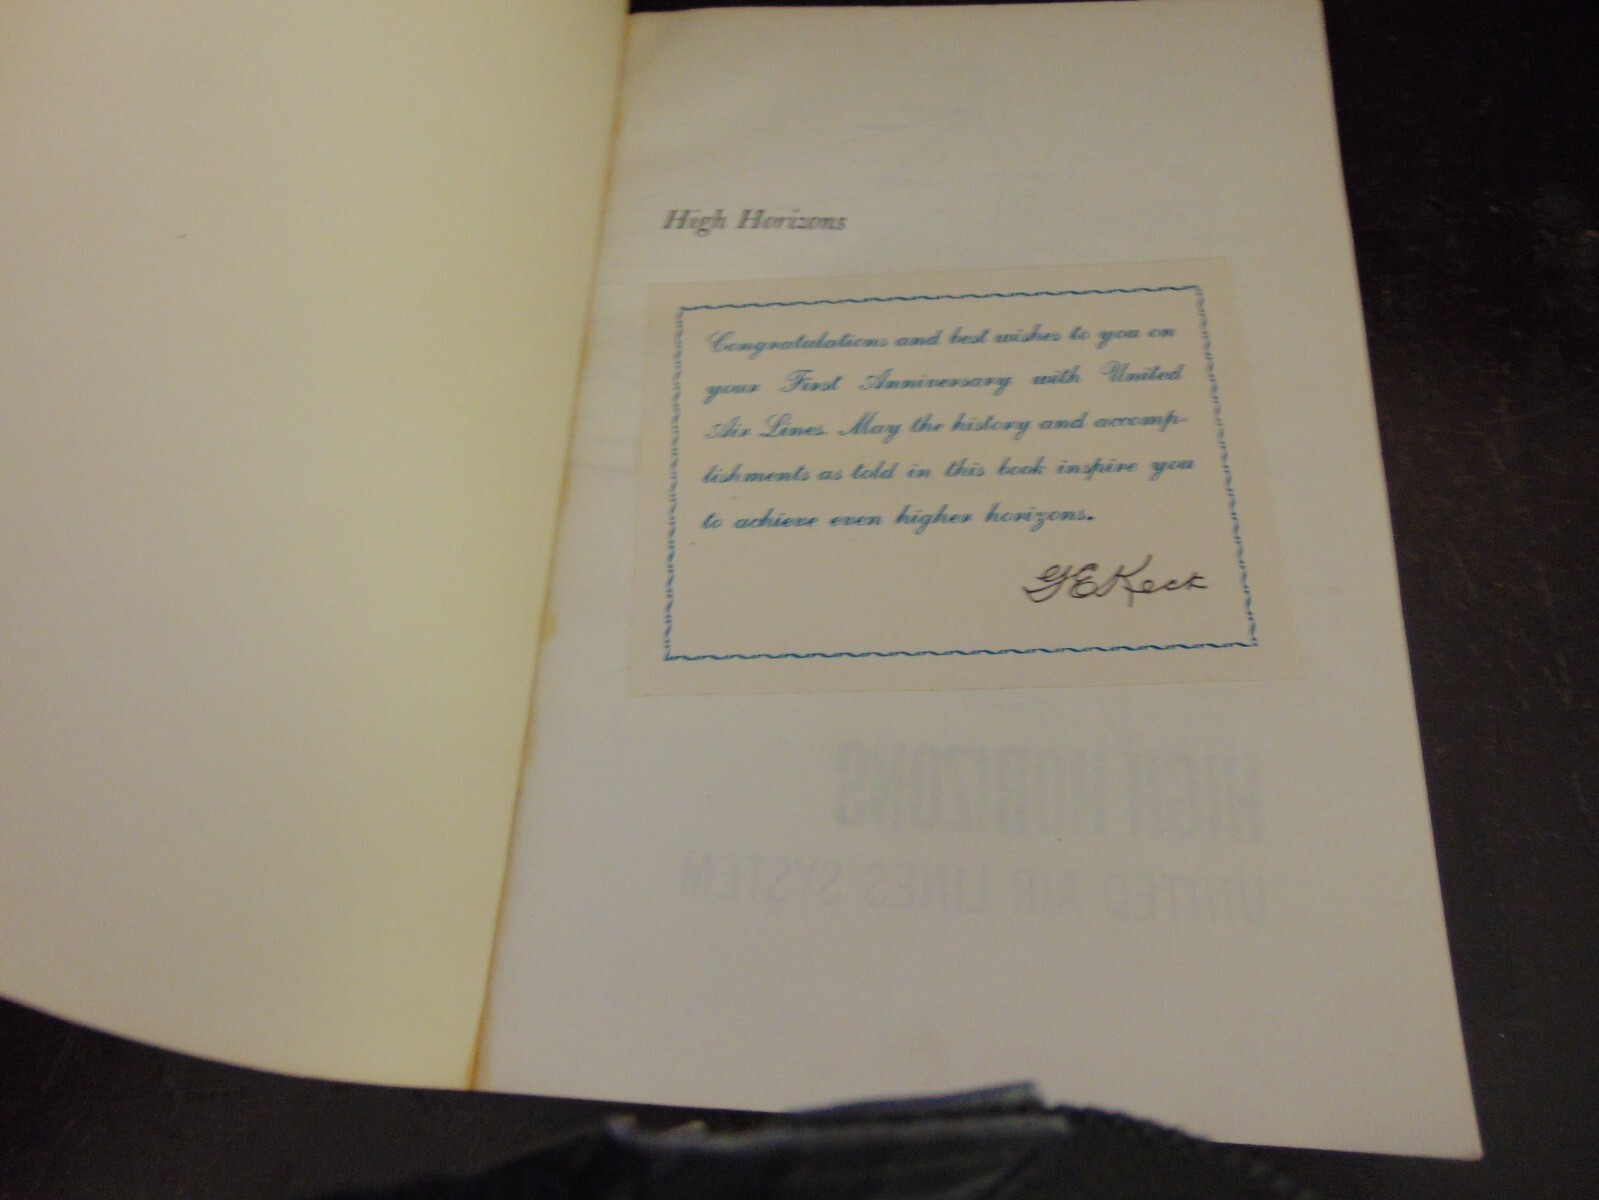 High Horizons
Congratulations and best wishes to you on
your First Anniversary with United
Air Lines. May the history and accomp-
lishments as told in this book inspire you
to achieve even higher horizons.
G E Keck
HIGH HORIZONS
UNITED AIR LINES SYSTEM